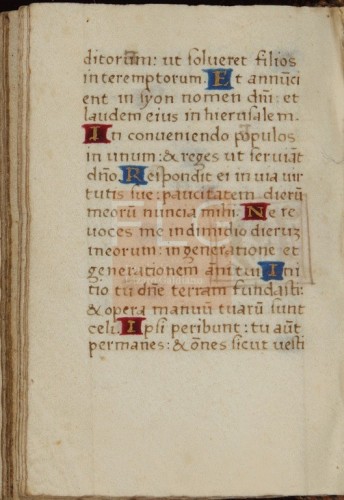 ditorum: ut solueret filios
interemptorum. Et annūci
ent in syon nomen dm̄: et
laudem eius in hierusalem.
In conueniendo populos
in unum: & reges ut seruiāt
dn̄o. Respondit ei in uia uir
tutis sue: paucitatem dierū
meorū nuncia mihi. Ne re
uoces me in dimidio dierum
meorum: in generatione et
generationem anni tui. Ini
tio tu dn̄e terram fundasti:
& opera manuū tuarū sunt
celi. Ipsi peribunt: tu aūt
permanes: & om̄es sicut uesti